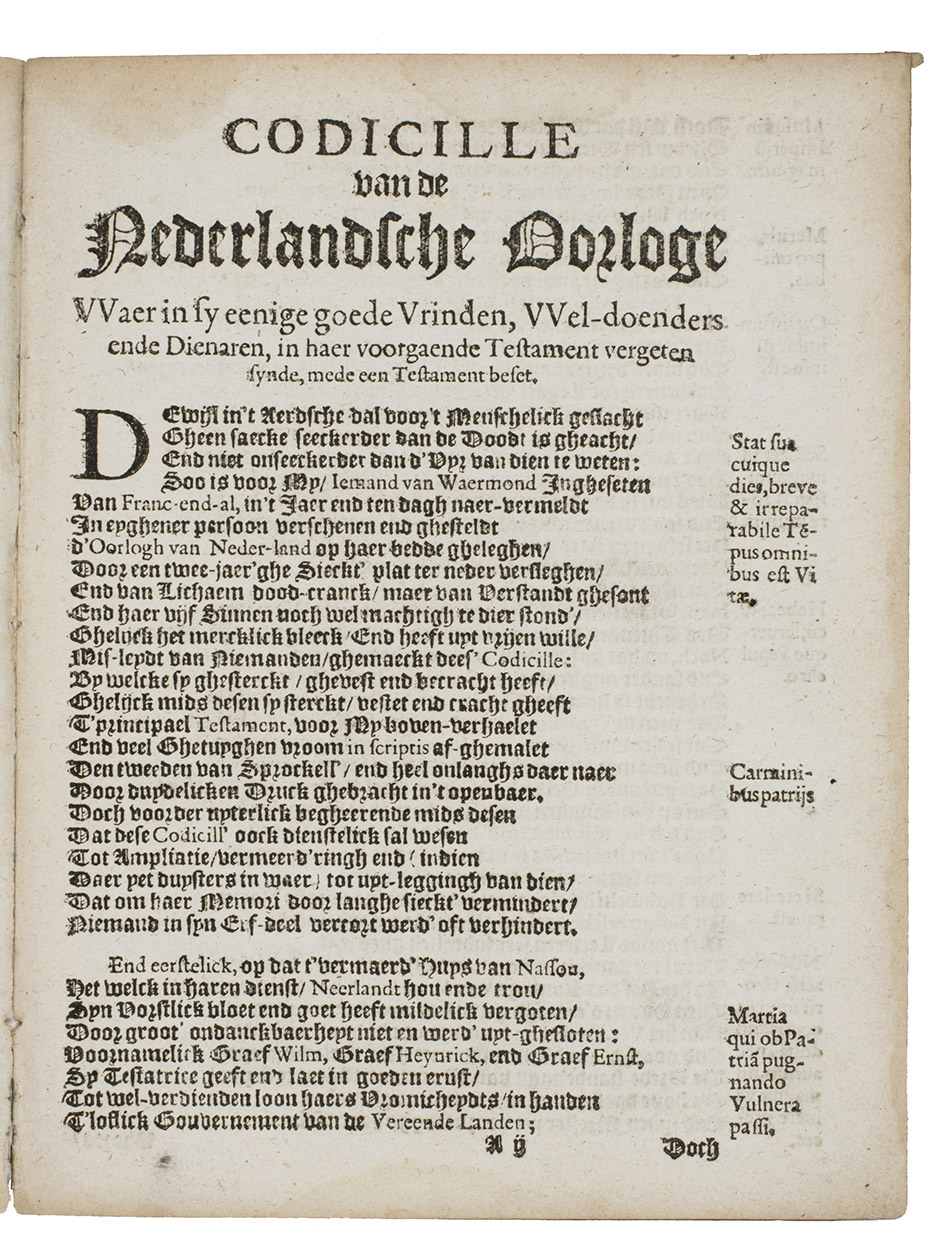 CODICILLE
van de
Nederlandsche Oorloge
VVaer in sy eenige goede Vrinden, VVel-doenders
ende Dienaren, in haer voorgaende Testament vergeten
synde, mede een Testament beset.
DEwijl in't Aerdsche dal voor't Menschelick geslacht
Gheen saecke seeckerder dan de Doodt is gheacht/
End niet onseeckerder dan d'Vyr van dien te weten:
Soo is voor My/ Iemand van Waermond Jngheseten
Van Franc-end-al, in't Jaer end ten dagh naer-vermeldt
Jn eyghener persoon verschenen end ghesteldt
d'Oorlogh van Neder-land op haer bedde gheleghen/
Door een twee-jaer'ghe Sieckt' plat ter neder versleghen/
End van Lichaem dood-cranck/ maer van Verstandt ghesont
End haer vijf Sinnen noch wel machtigh te dier stond'/
Ghelijck het mercklick bleeck/ End heeft uyt vrijen wille/
Mis-leydt van Niemanden/ghemaeckt dees' Codicille:
By welcke sy ghesterckt / ghevest end becracht heeft/
Ghelijck mids desen sy sterckt/ vestet end cracht gheeft
T'principael Testament, voor My boven-verhaelet
End veel Ghetuyghen vroom in scriptis af-ghemalet
Den tweeden van Sprockell' / end heel onlanghs daer naer
Door duydelicken Druck ghebracht in't openbaer.
Doch voorder uyterlick begheerende mids desen
Dat dese Codicill' oock dienstelick sal wesen
Tot Ampliatie/vermeerd'ringh end ( indien
Daer yet duysters in waer) tot uyt-leggingh van dien/
Dat om haer Memori door langhe sieckt' vermindert/
Niemand in syn Erf-deel vercort werd' oft verhindert.
End eerstelick, op dat t'vermaerd' Huys van Nassou,
Het welck in haren dienst/ Neerlandt hou ende trou/
Syn Vorstlick bloet end goet heeft mildelick vergoten/
Door groot' ondanckbaerheyt niet en werd' uyt-ghesloten :
Voornamelick Graef Wilm, Graef Heynrick, end Graef Ernst,
Sy Testatrice geeft end laet in goeden ernst/
Tot wel-verdienden loon haers Vromicheydts/in handen
T'loflick Gouvernement van de Vereende Landen;
A ij
Doch
Stat sua
cuique
dies, breve
& irrepa-
rabile Tē-
pus omni-
bus est Vi
tæ.
Carmini-
bus patrijs
Martia
qui ob Pa-
triã pug-
nando
Vulnera
passi.